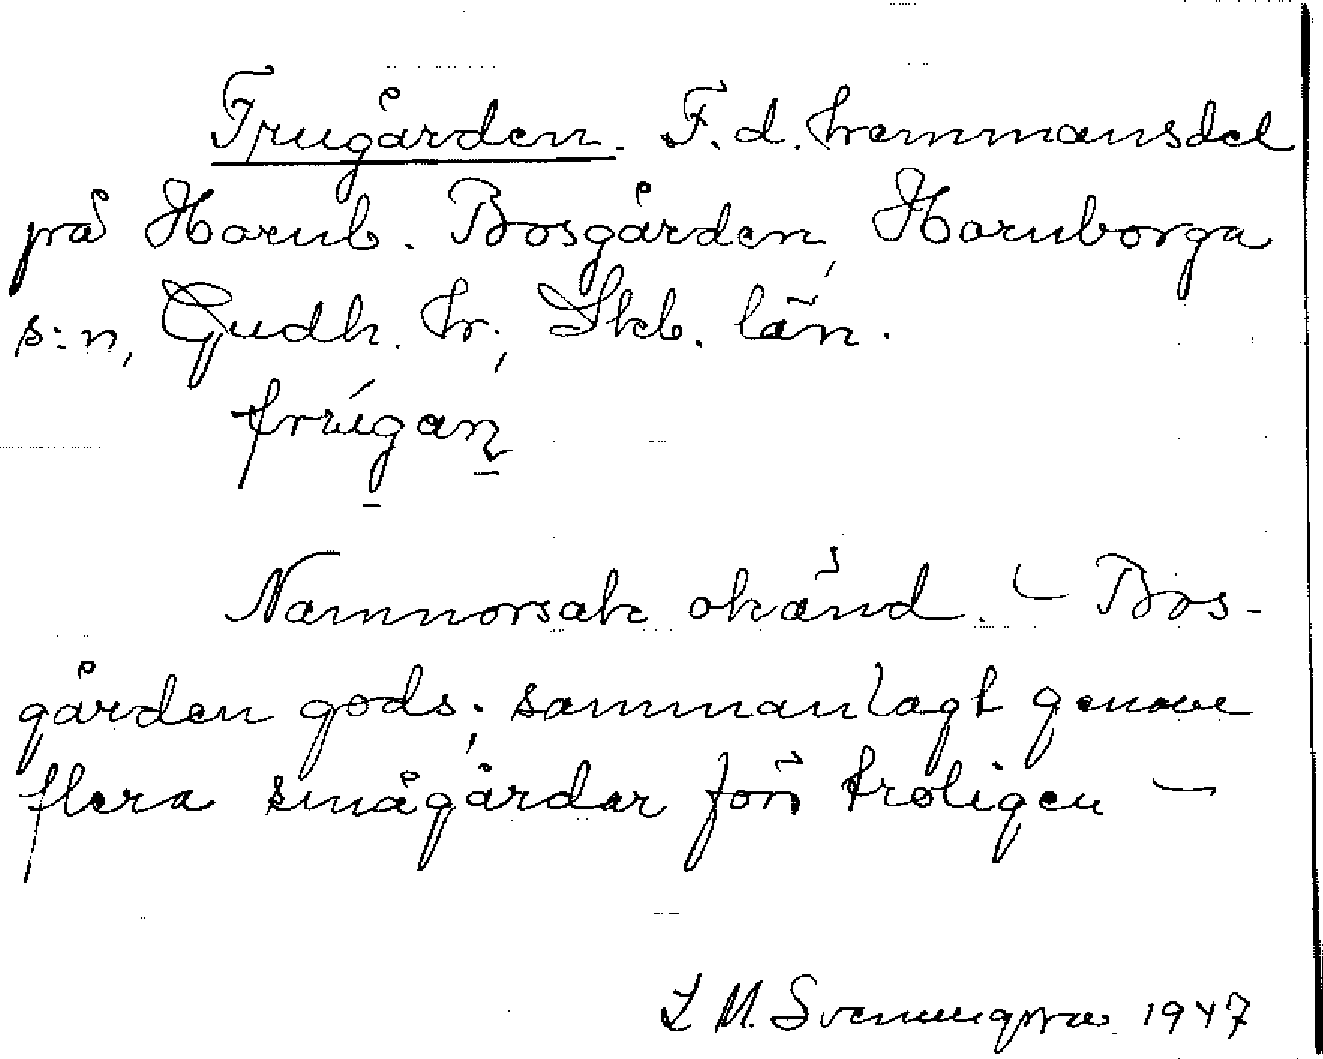 Frugården. F. d. hemmansdel
på Hornb. Bosgården, Hornborga
s:n, Gudh. hr; Skb. län.
frúgan
Namnorsak okänd. – Bos-
gården gods; sammanlagt genom
flera smågårdar förr troligen –
L M. Svenungsson 1947